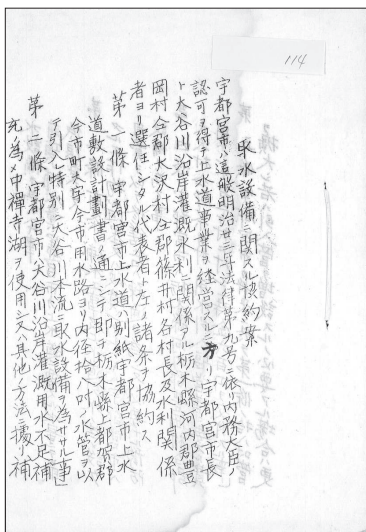 114
取水設備ニ関スル協約案
宇都宮市ハ這般明治廿三年法律第九号ニ依リ内務大臣ノ
認可ヲ得テ上水道事業ヲ経営スルニ方リ宇都宮市長
ト大谷川沿岸灌漑水利ニ関係アル栃木縣河内郡豊
岡村仝郡大沢村仝郡篠井村各村長及水利関係
者ヨリ選任シタル代表者ト左ノ諸条ヲ協約ス
第一條 宇都宮市上水道ハ別紙宇都宮市上水
道敷設計畫書ノ通ニシテ即チ栃木縣上都賀郡
今市町大字今市用水路ヨリ内径拾八吋ノ水管ヲ以
テ引入レ特別ニ大谷川本流ニ取水設備ヲ為サヾル事
第二條 宇都宮市ハ大谷川沿岸灌漑用水不足補
充ノ為メ中禪寺湖ヲ使用シ又ハ其他ノ方法ニ據リ補